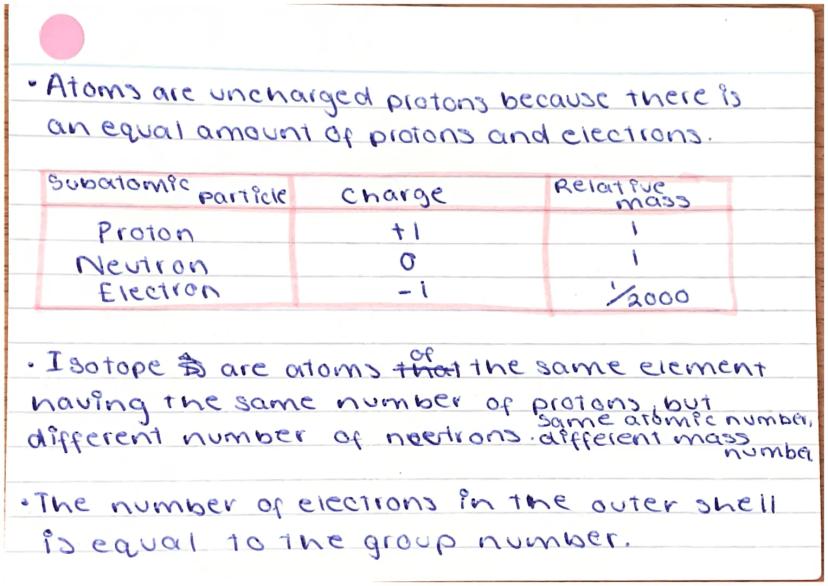 • Atoms are uncharged protons because there is
an equal amount of protons and electrons.
Subatomic particle Charge Relative mass
Proton +1 1
Neutron 0 1
Electron -1 1/2000
• Isotope are atoms that of the same element
having the same number of protons, but
different number of neetrons. same atomic number,
different mass
number
• The number of electrons in the outer shell
is equal to the group number.